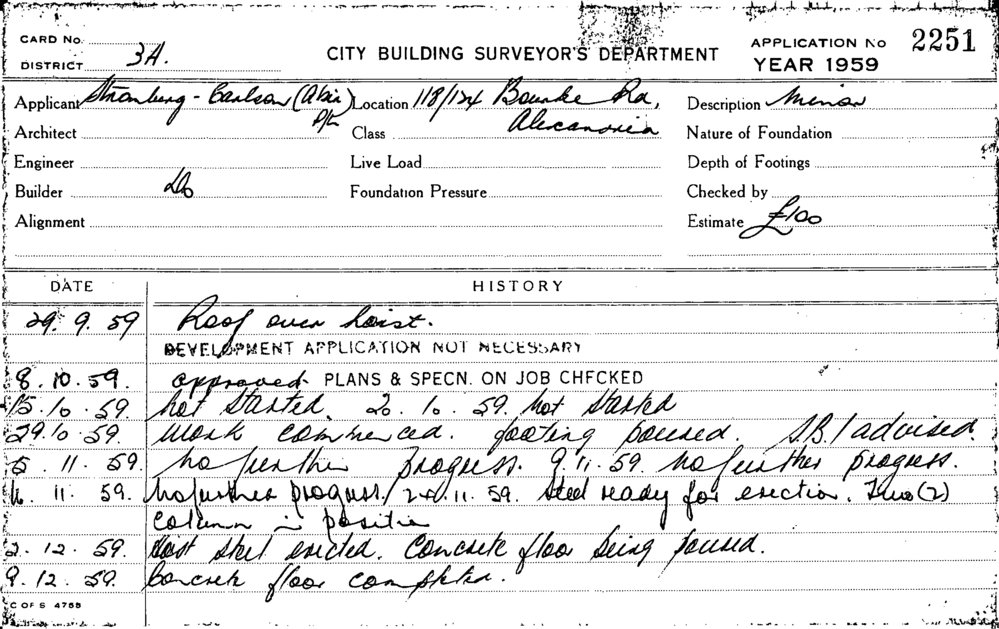 CARD No.
DISTRICT 3A.
CITY BUILDING SURVEYOR'S DEPARTMENT
APPLICATION No 2251
YEAR 1959
Applicant Stromberg-Carlson (A/sia) P/L Location 118/124 Bourke Rd, Alexandria Description Minor
Architect Class Nature of Foundation
Engineer Live Load Depth of Footings
Builder Do Foundation Pressure Checked by
Alignment Estimate £100
DATE HISTORY
29. 9. 59 Roof over hoist.
DEVELOPMENT APPLICATION NOT NECESSARY
8. 10. 59. approved PLANS & SPECN. ON JOB CHECKED
15. 10. 59. Not started. 20. 10. 59. Not started
29. 10. 59. Work commenced. footing poured. advised.
5. 11. 59. No further progress. 9. 11. 59. No further progress.
11. 59. No further progress. 24. 11. 59. Steel ready for erection. Two (2)
column in position
2. 12. 59. steel erected. Concrete floor being poured.
9. 12. 59. Concrete floor completed.
C OF S 4755